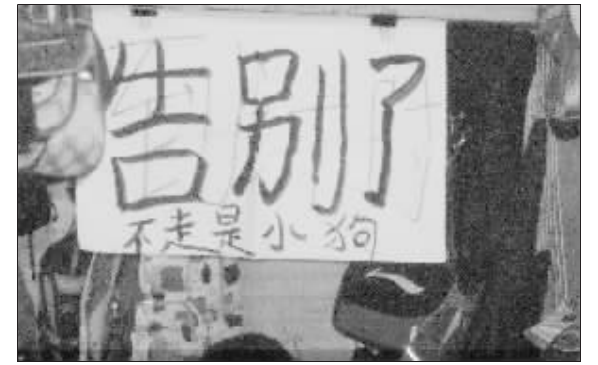 告别了
不走是小狗